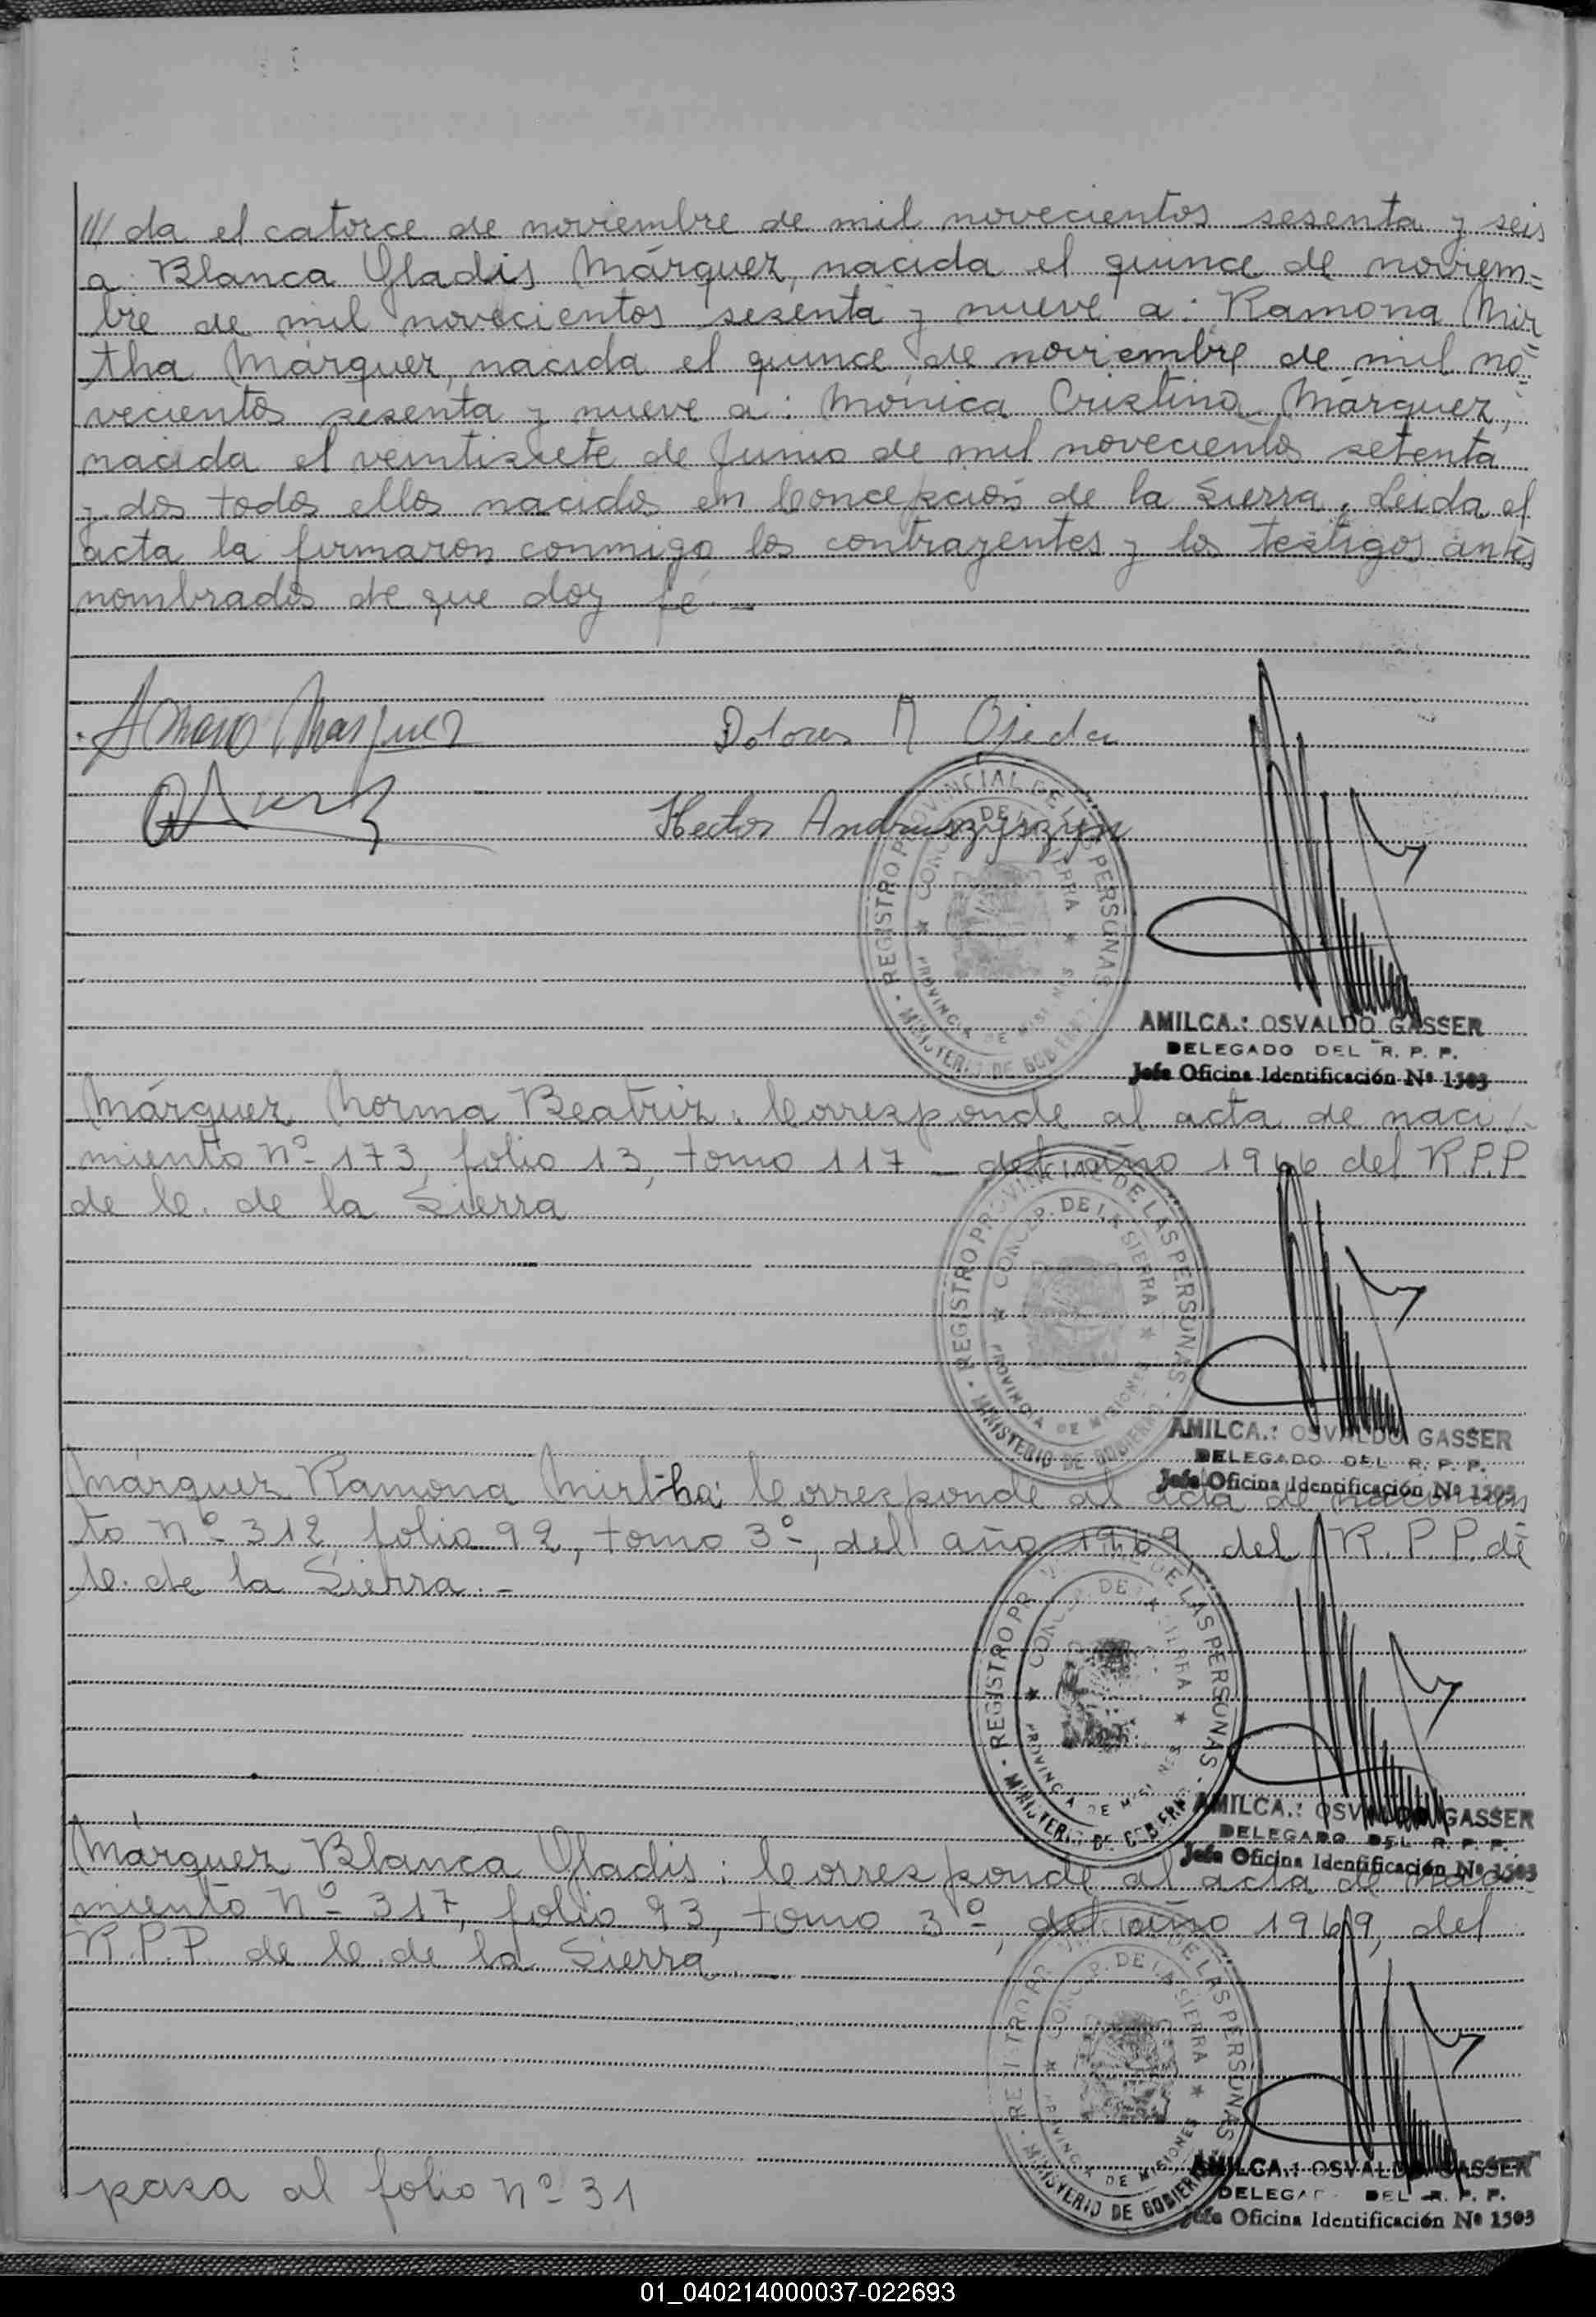 /// da el catorce de noviembre de mil novecientos sesenta y seis
a: Blanca Gladis Márquez, nacida el quince de noviem=
bre de mil novecientos sesenta y nueve a: Ramona Mir
tha Márquez, nacida el quince de noviembre de mil no=
vecientos sesenta y nueve a: Mónica Cristina Márquez,
nacida el veintisiete de Junio de mil novecientos setenta
y dos todos ellos nacidos en Concepción de la Sierra. Leida el
acta la firmaron conmigo los contrayentes y los testigos antes
nombrados de que doy fé.-
Marquez
Dolores R Ojeda
Hector Andruszyszyn
REGISTRO PROVINCIAL DE LAS PERSONAS
CONC. DE LA SIERRA
PROVINCIA DE MISIONES
MINISTERIO DE GOBIERNO
AMILCA.: OSVALDO GASSER
DELEGADO DEL R. P. P.
Jefe Oficina Identificación Nº 1503
Márquez Norma Beatriz: Corresponde al acta de naci
miento Nº 173, folio 13, tomo 117 - del año 1966 del R.P.P
de C. de la Sierra
REGISTRO PROVINCIAL DE LAS PERSONAS
CONCEP. DE LA SIERRA
PROVINCIA DE MISIONES
MINISTERIO DE GOBIERNO
AMILCA.: OSVALDO GASSER
DELEGADO DEL R. P. P.
Jefe Oficina Identificación Nº 1503
Márquez Ramona Mirtha: Corresponde al acta de nacimien
to Nº 312, folio 92, tomo 3º, del año 1969, del R.P.P. de
C. de la Sierra.-
REGISTRO PROVINCIAL DE LAS PERSONAS
CONCEP. DE LA SIERRA
PROVINCIA DE MISIONES
MINISTERIO DE GOBIERNO
AMILCA.: OSVALDO GASSER
DELEGADO DEL R. P. P.
Jefe Oficina Identificación Nº 1503
Márquez Blanca Gladis: Corresponde al acta de naci
miento Nº 317, folio 93, tomo 3º, del año 1969, del
R.P.P. de C. de la Sierra.-
REGISTRO PROVINCIAL DE LAS PERSONAS
CONCEP. DE LA SIERRA
PROVINCIA DE MISIONES
MINISTERIO DE GOBIERNO
AMILCA.: OSVALDO GASSER
DELEGADO DEL R. P. P.
Jefe Oficina Identificación Nº 1503
pasa al folio Nº 31
01_040214000037-022693